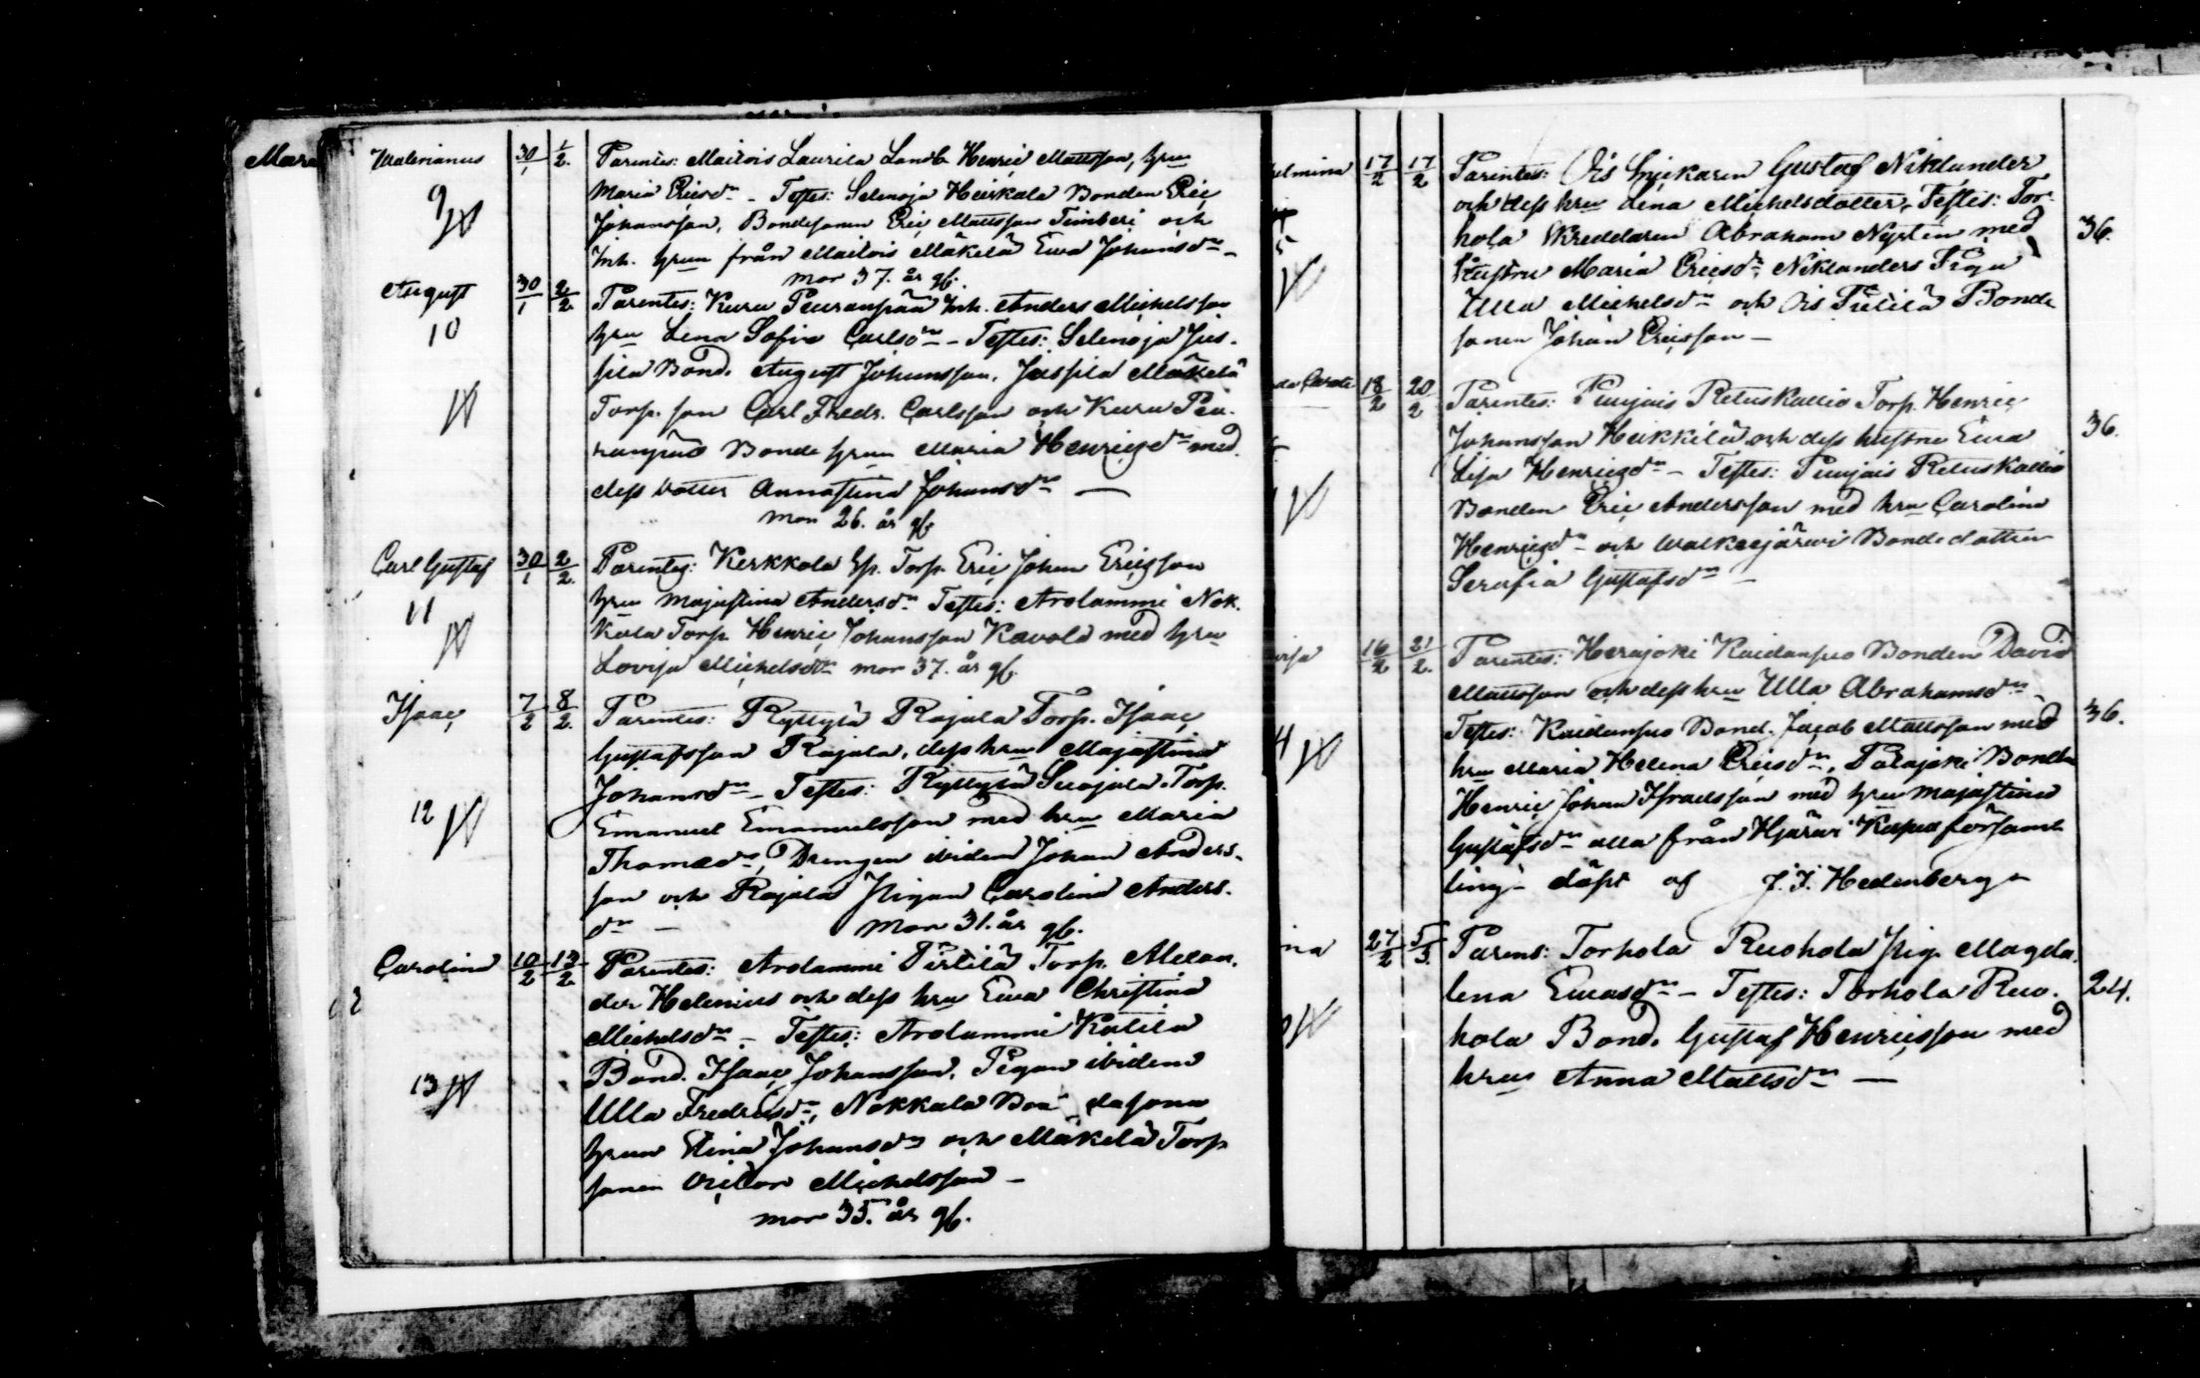 Valerianus 30/1 1/2 Parentes: Maitois Laurila Landb. Henric Mattsson, hru
9 Maria Ericsdr - Testes: Selenoja Heikkala Bonden Eric
Johansson, Bondesonen Eric Mattsson Timberi och
Inh. hrun från Maitois Mäkelä Ewa Johansdr -
mor 37. år gb.
August 30/1 2/2 Parentes: Kuru Peuranpää Inh. Anders Michelsson
10 hru Lena Sofia Carlsdr - Testes: Selenoja Jus-
sila Bond. August Johansson, Jussila Mäkelä
Torp. son Carl Fredr. Carlsson och Kuru Peu-
ranpää Bonde hrun Maria Henricsdr med
dess dotter Annastina Johansdr —
mor 26. år gb.
Carl Gustaf 30/1 2/2 Parentes: Kerkkola Torp. Eric Johan Ericsson
11 hru Majastina Andersdr Testes: Arolammi Nok-
kala Torp. Henric Johansson Kavola med hru
Lovisa Michelsdr mor 37. år gb.
Isaac 7/2 8/2 Parentes: Ryttylä Rajala Torp. Isaac
Gustafsson Rajala, dess hru Majastina
Johansdr - Testes: Ryttylä Suojala Torp.
12 Emanuel Emanuelsson med hru Maria
Thomasdr, Drengen ibidem Johan Anders-
son och Rajala Pigan Carolina Anders-
dr — mor 31. år gb.
Carolina 10/2 12/2 Parentes: Arolammi Pirtilä Torp. Alexan-
der Helenius och dess hru Ewa Christina
Michelsdr - Testes: Arolammi Katila
Bond. Isaac Johansson, Pigan ibidem
13 Ulla Fredricsdr, Nokkala Bondesons
hrun Stina Johansdr och Mäkelä Torp
sonen Victor Michelsson -
mor 35. år gb.
elmina 17/2 17/2 Parentes: Ois Snickaren Gustaf Niklander
och dess hru Lena Michelsdotter, Testes: Tor-
hola Skreddaren Abraham Nysten med 36.
hustru Maria Ericsdr Niklanders Piga
Ulla Michelsdr och Ois Pietilä Bonde
sonen Johan Ericsson —
18/2 20/2 Parentes: Punjois Retuskallio Torp. Henric
Johansson Heikkilä och dess hustru Ewa 36.
Lisa Henricsdr - Testes: Punjois Retuskallio
Bonden Eric Andersson med hru Carolina
Henricsdr och Walkeejärwi Bondedottern
Serafia Gustafsdr -
visa 16/2 21/2 Parentes: Herajoki Kaidansuo Bonden David
Mattsson och dess hru Ulla Abrahamsdr -
Testes: Kaidansuo Bond. Jacob Mattsson med 36.
hru Maria Helena Ericsdr, Palajoki Bonden
Henric Johan Israelsson med hru Majastina
Gustafsdr alla från församl-
ling - döpt af J. J. Hedenberg -
ina 27/2 5/3 Parens: Torhola Ruohola Pig. Magda-
lena Ewasdr - Testes: Torhola Ruo- 24.
hola Bond. Gustaf Henricsson med
hru Anna Mattsdr —